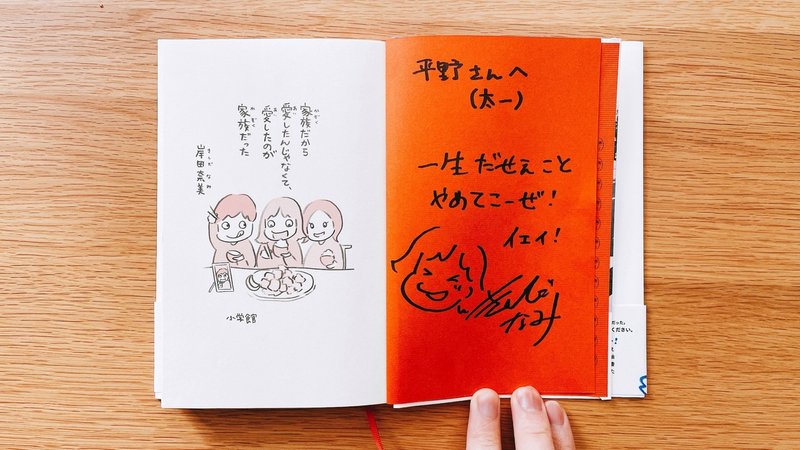 家族だから
愛したんじゃなくて、
愛したのが
家族だった
岸田奈美
小学館
平野さんへ
(太一)
一生だせえこと
やめてこーぜ!
イェイ!
きしだ
なみ
だった。
ください。